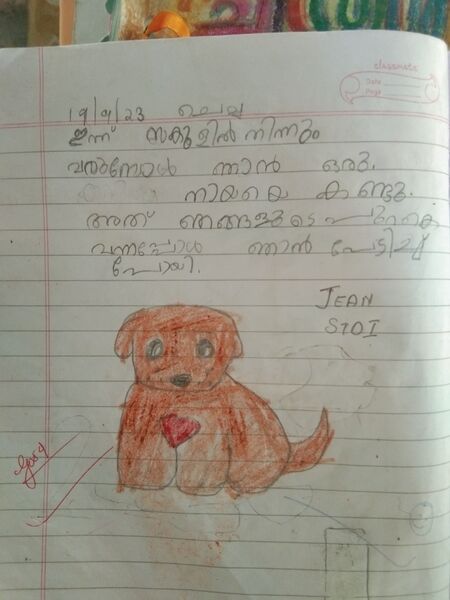 classmate
Date
Page
19/9/23 ചൊവ്വ
ഇന്ന് സ്കൂളിൽ നിന്നും
വരുമ്പോൾ ഞാൻ ഒരു.
നായയെ കണ്ടു.
അത് ഞങ്ങളുടെ പുറകെ
വന്നപ്പോൾ ഞാൻ പേടിച്ച്
പോയി.
JEAN
STD I
Good